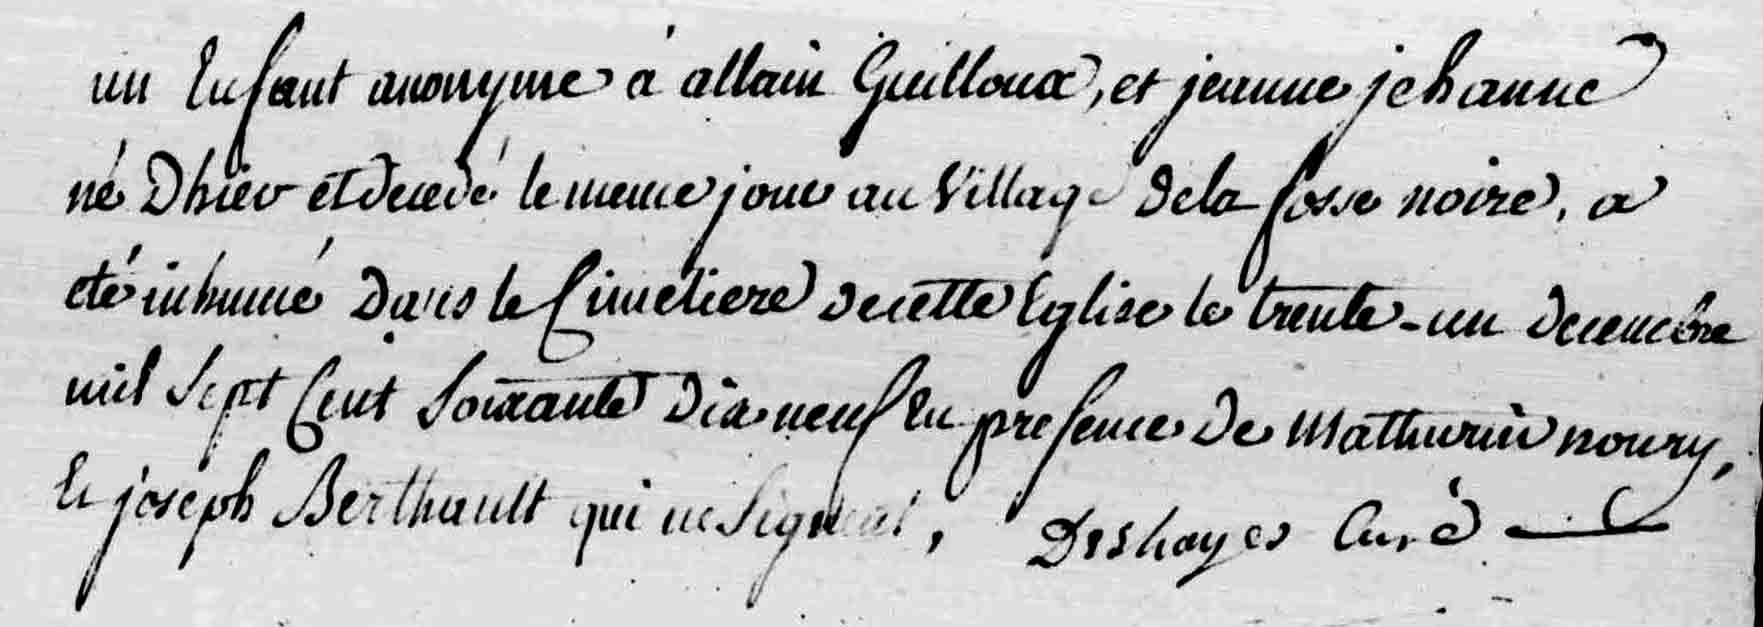 un Enfant anonyme à allain Guilloux, et jeanne jehanne
né Dhier et decedé le meme jour au Village dela fosse noire, a
eté inhumé Dans le Cimetiere decette Eglise le trente-un decembre
mil Sept Cent Soixante Dix neuf En presence De Mathurin noury,
Et joseph Berthault qui ne Signent, Deshayes Curé